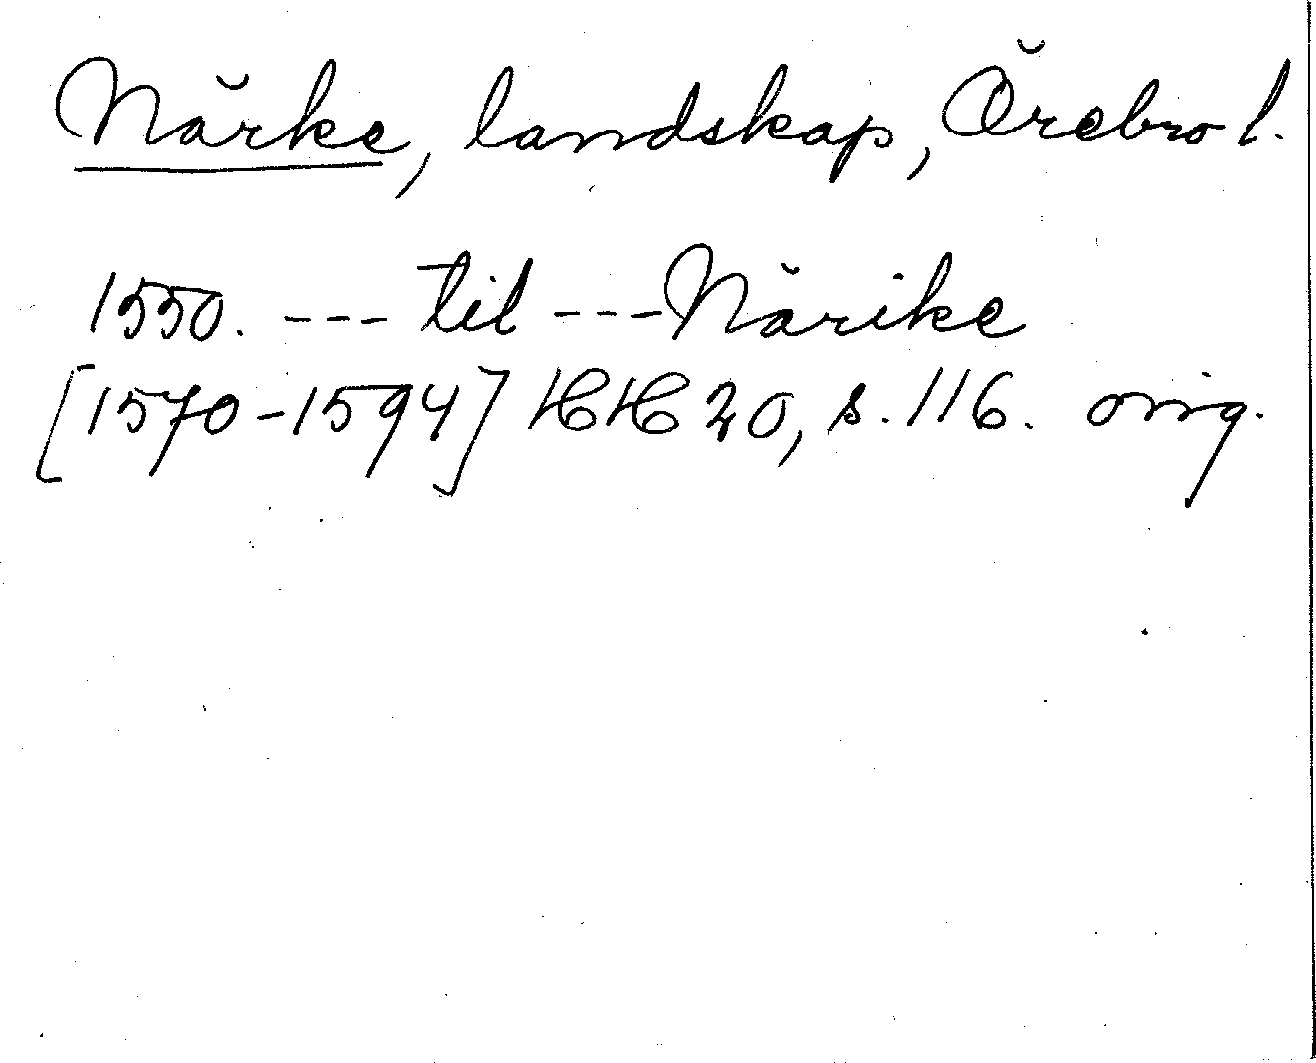 Närke, landskap, Örebro l.
1550. --- til --- Närike
[1570-1594] HH 20, s. 116. orig.